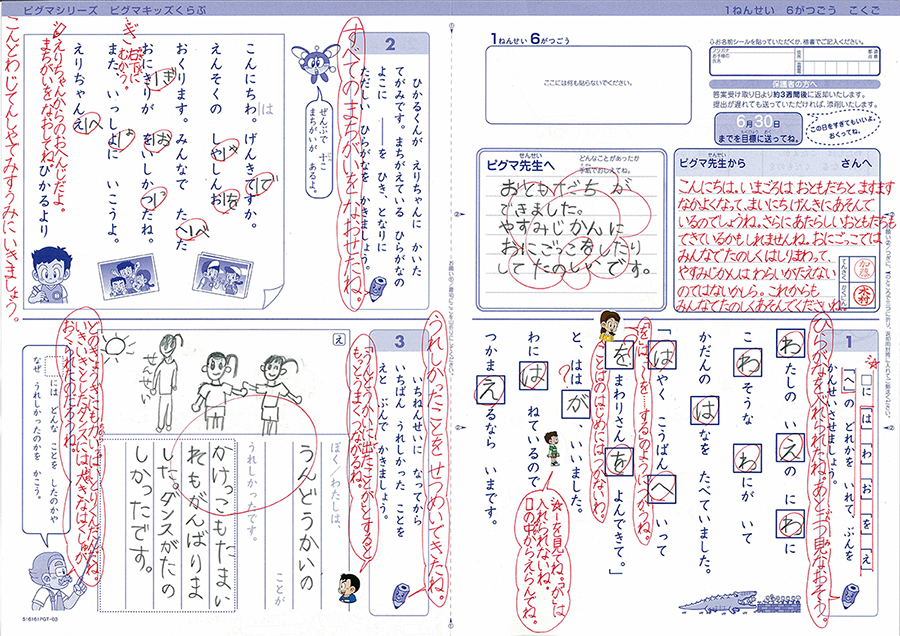 ピグマシリーズ ピグマキッズくらぶ
1ねんせい 6がつごう こくご
1ねんせい 6がつごう
ここには何も貼らないでください。
お名前シールを貼っていただくか、楷書でご記入ください。
保護者の方へ
答案受け取り日より約3週間後に返却いたします。
提出が遅れても送っていただければ、添削いたします。
6月30日
までを目標に送ってね。
この日をすぎてもいいよ。
おくってね。
ピグマ先生へ
せんせい
どんなことがあったか
手紙でおしえてね。
おともだちが
できました。
やすみじかんに
おにごっこをしたり
してたのしいです。
ピグマ先生から
せんせい
さんへ
こんにちは。いまごろは おともだちと ますます
なかよくなって、まいにち げんきに あそんで
いるのでしょうね。さらに あたらしい おともだちも
できているかもしれませんね。おにごっこでは
みんなで たのしく はしりまわって、
やすみじかんは わらいがたえない
のではないかしら。これからも
みんなで たのしく あそんでくださいね。
木村
1
□に「は」「わ」「お」「を」「え」
「へ」の どれかを いれて、ぶんを
かんせいさせましょう。
ひらがなをいれられたね。あと一つ見なおそう。
わたしの いえの にわに
こわそうな わにが いて
かだんの はなを たべていました。
「はやく こうばんへ いって
をまわりさんを よんできて。」
「を」は「～を…する」のようにつかうね。
ことばのはじめには つかないわ。
と、ははが、いいました。
わには ねているので
つかまえるなら いまです。
☆ーを見てね。「が」は
入れられないね。
□の中からえらんでね。
2
ひかるくんが えりちゃんに かいた
てがみです。まちがえている ひらがなの
よこに ――を ひき、となりに
ただしい ひらがなを かきましょう。
すべてのまちがいをなおせたね。
ぜんぶで 十こ
まちがいが
あるよ。
こんにちわ。げんきてすか。
は
で
えんそくの しやしんお
ゃ
を
おくります。みんなで たへた
べ
おにきりが をいしかつたね。
ぎ
お
っ
また いっしよに いこうよ。
ょ
えりちゃんえ
へ
ひかるより
ぎ
右下に
むかう。
えりちゃんからのおへんじだよ。
まちがいをなおしてね。
こんどわじてんしやでみずうみにいきましょう。
3
いちねんせいに なってから
いちばん うれしかった ことを
えと ぶんで かきましょう。
うれしかったことをせつめいできたね。
「うんどうかいに出たことが」とすると
もっとうまくつながるね。
え
せんせい
ぼく／わたしは、
うんどうかいの
ことが
うれしかったです。
かけっこもたまい
れもがんばりま
した。ダンスがたの
しかったです。
いつ、どんな ことを したのかや
なぜ うれしかったのかを かこう。
516161PGT-03